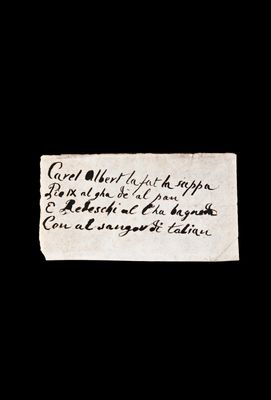 Carel Albert la fat la sùppa
Pio IX al gha dè al pan
E Redeschi al l'ha bagnada
Con al sangov di talian